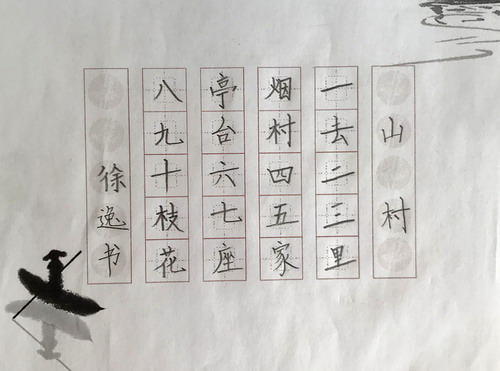 山村
一去二三里
烟村四五家
亭台六七座
八九十枝花
徐逸书